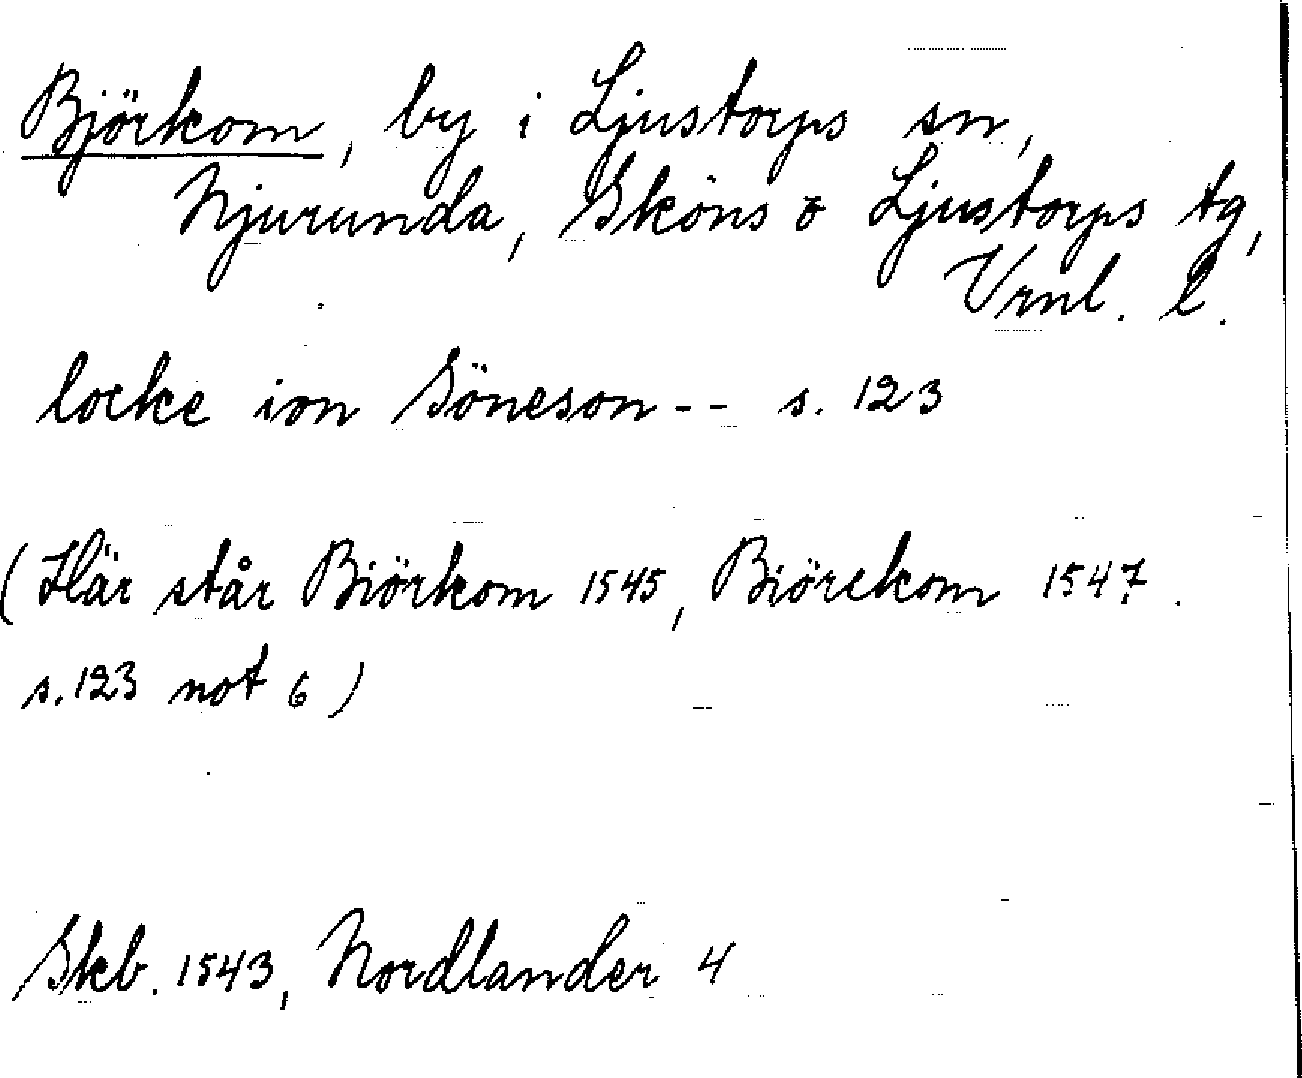 Björkom, by i Ljustorps sn,
Njurunda, Sköns o Ljustorps tg,
Vrnl. l.
locke ion Söneson -- s. 123
(Här står Biörkom 1545, Biörckom 1547.
s. 123 not 6)
Skb. 1543, Nordlander 4